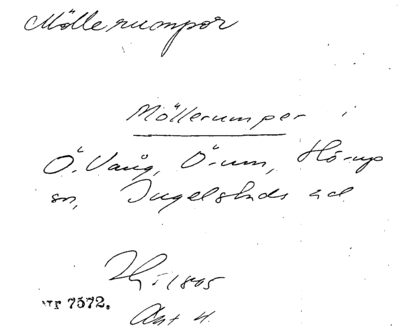 Möllerumpor
Möllerumper i
Ö. Vång, Ö-um, Hörup
sn, Ingelstads hd
1805
nr 7572.
Akt 4.